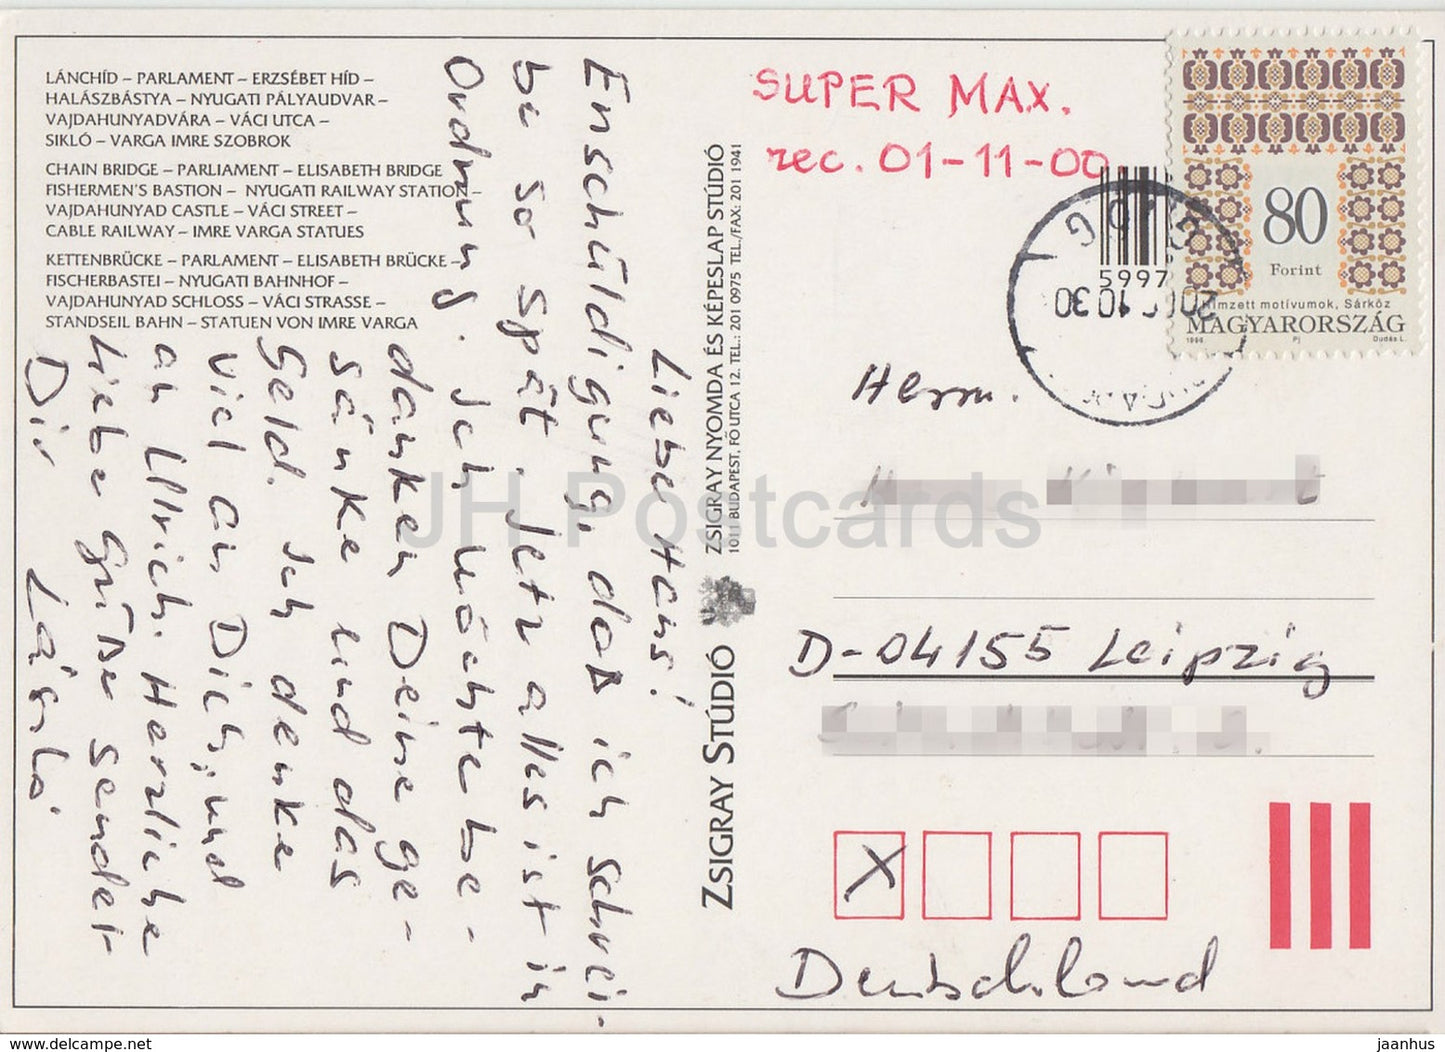 LÁNCHÍD – PARLAMENT – ERZSÉBET HÍD –
HALÁSZBÁSTYA – NYUGATI PÁLYAUDVAR –
VAJDAHUNYADVÁRA – VÁCI UTCA –
SIKLÓ – VARGA IMRE SZOBROK
CHAIN BRIDGE – PARLIAMENT – ELISABETH BRIDGE
FISHERMEN'S BASTION – NYUGATI RAILWAY STATION –
VAJDAHUNYAD CASTLE – VÁCI STREET –
CABLE RAILWAY – IMRE VARGA STATUES
KETTENBRÜCKE – PARLAMENT – ELISABETH BRÜCKE –
FISCHERBASTEI – NYUGATI BAHNHOF –
VAJDAHUNYAD SCHLOSS – VÁCI STRASSE –
STANDSEIL BAHN – STATUEN VON IMRE VARGA
Lieber Hans!
Enschüldigung, daß ich schrei-
be so spät. Jetz alles ist in
Ordnung. Ich möchte be-
danken Deine ge-
sänke und das
Geld. Ich denke
viel an Dich, und
an Ulrich. Herzliche
Liebe Grüße sendet
Dir László
ZSIGRAY STÚDIÓ
ZSIGRAY NYOMDA ÉS KÉPESLAP STÚDIÓ
1011 BUDAPEST, FŐ UTCA 12. TEL.: 201 0975 TEL./FAX: 201 1941
SUPER MAX.
rec. 01-11-00
5997
10 30
80
Forint
Hímzett motívumok, Sárköz
MAGYARORSZÁG
1996 Pj Dudás L.
Herrn.
D-04155 Leipzig
X
Deutschland
JH Postcards
www.delcampe.net
jaanhus